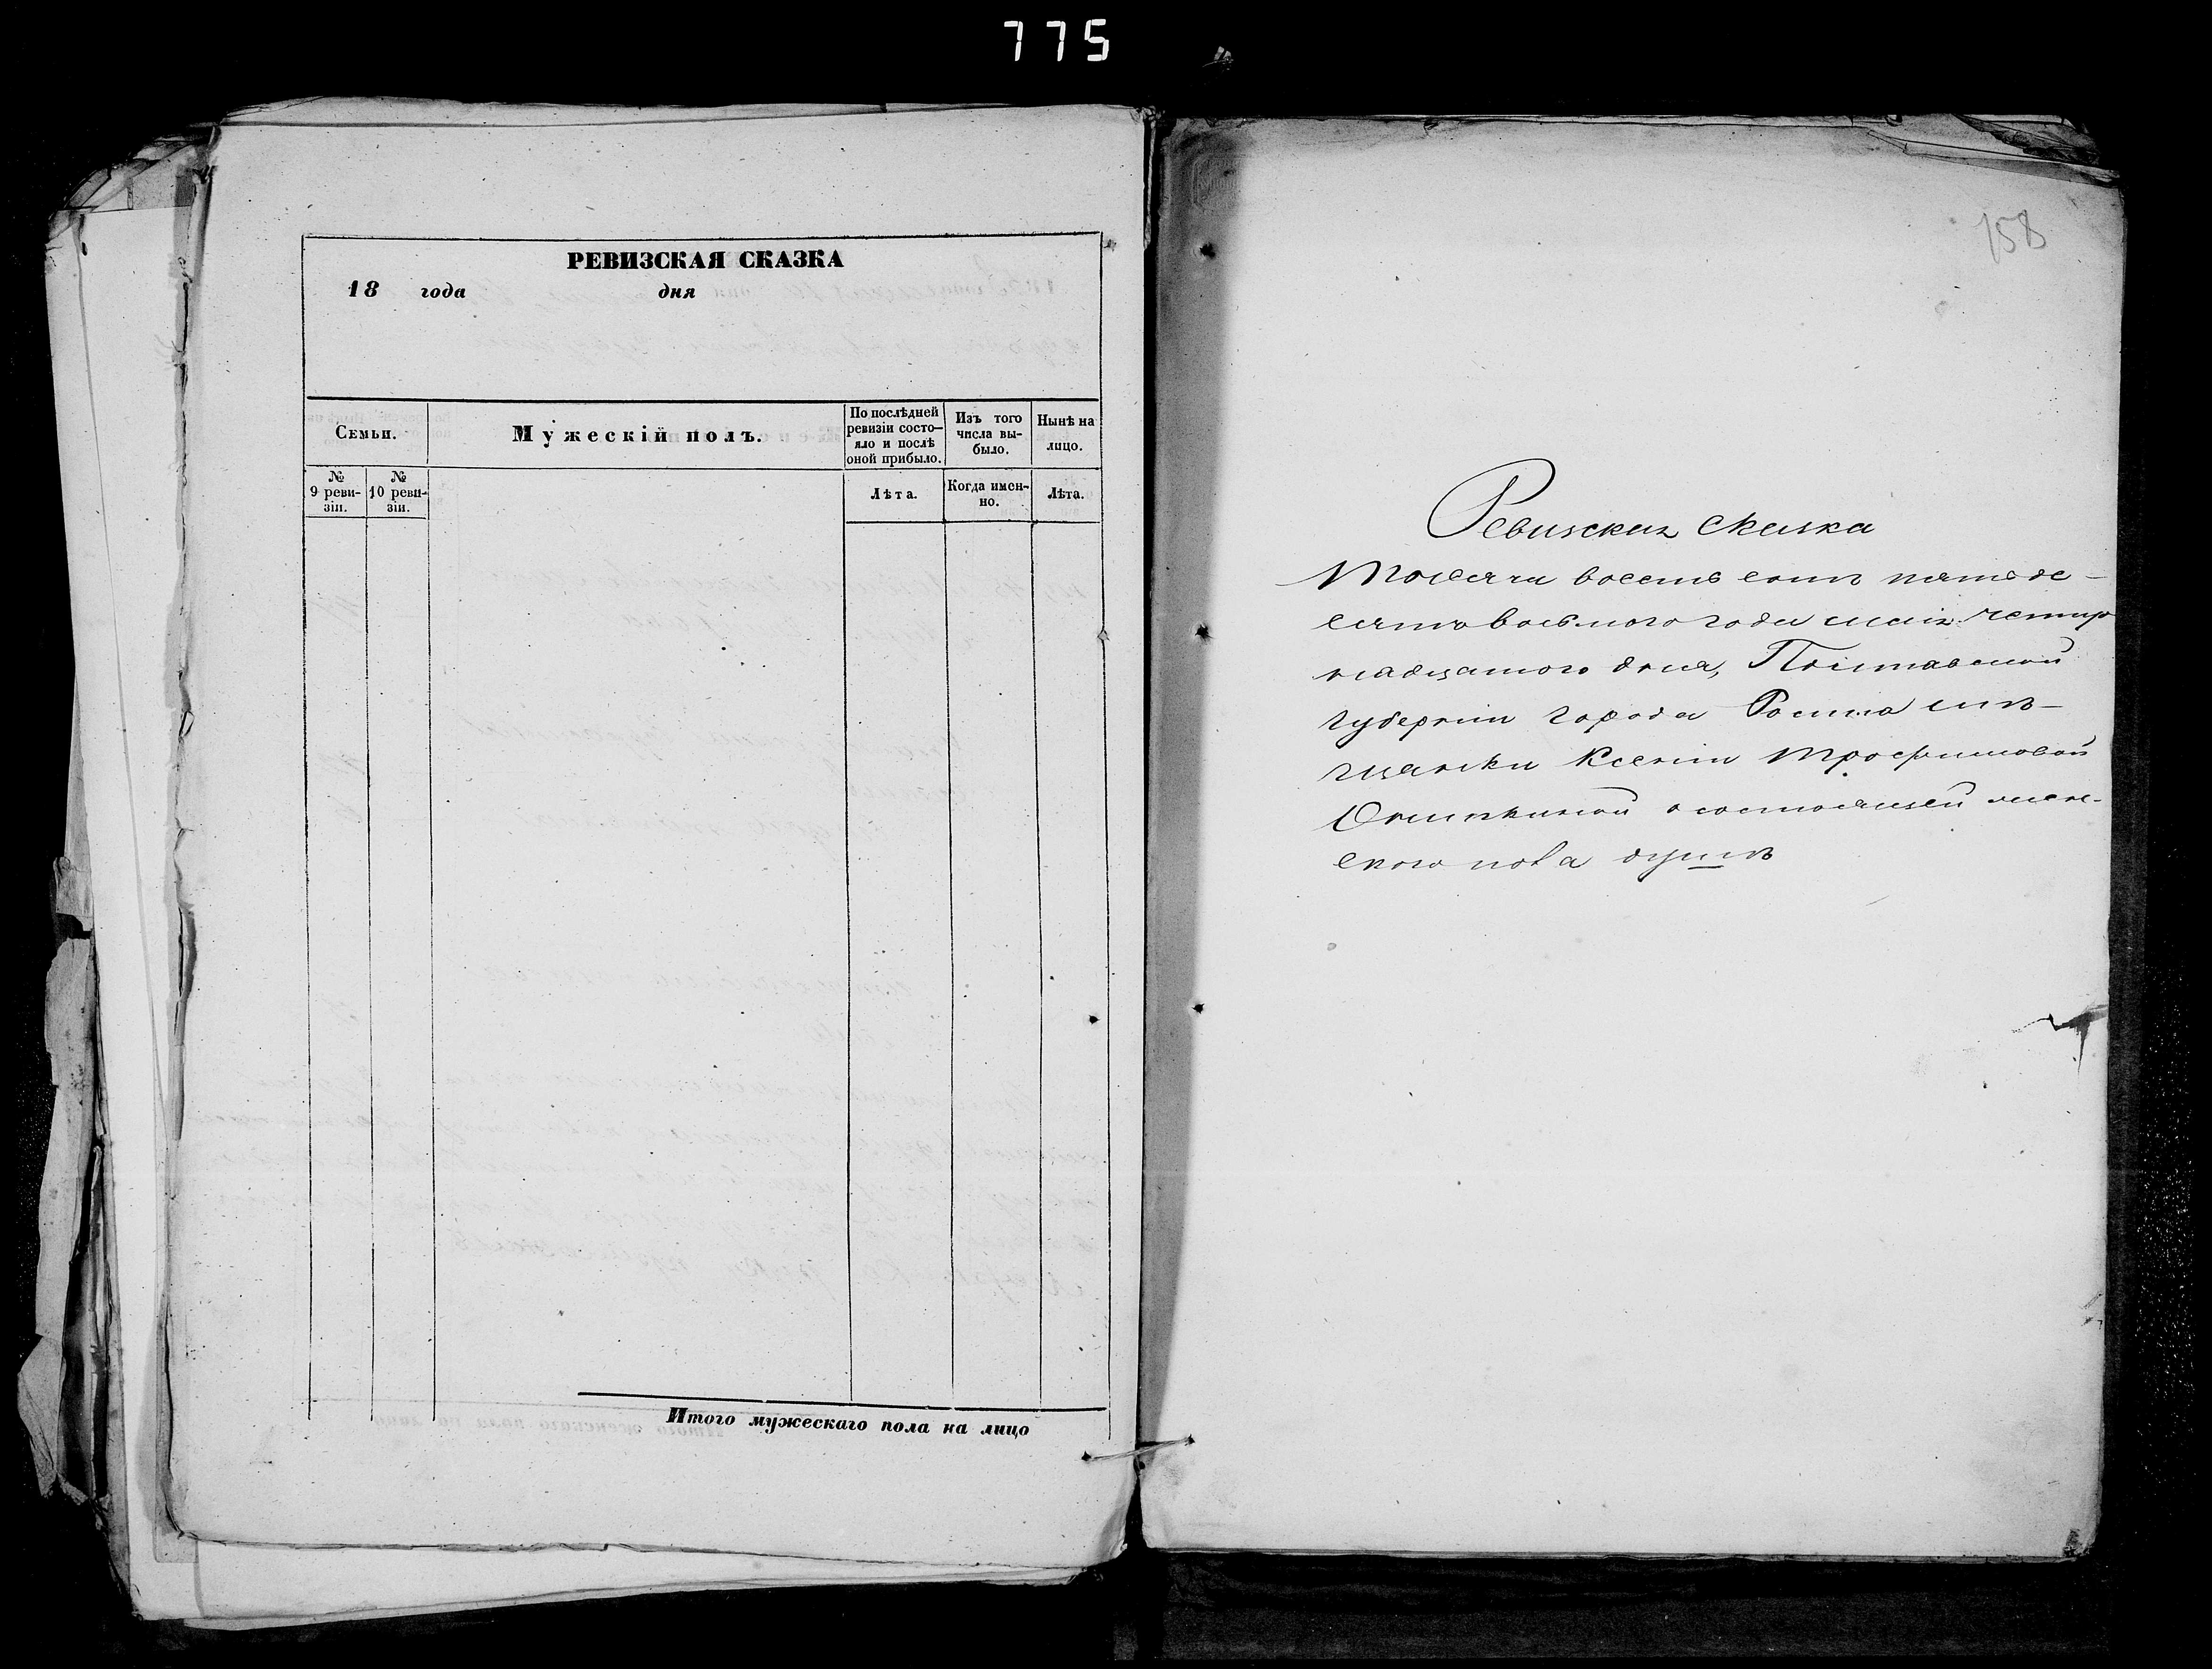 775
РЕВИЗСКАЯ СКАЗКА
18 года дня
Семьи.
Мужескій полъ.
По послѣдней ревизіи состо-
яло и послѣ оной прибыло.
Изъ того числа вы-
было.
Нынѣ на лицо.
№ 9 реви-
зіи.
№ 10 реви-
зіи.
Лѣта.
Когда имен-
но.
Лѣта.
Итого мужескаго пола на лицо
158
Ревизская сказка
Тысяча восемь сотъ пятьде-
сятъ восьмого года мая четыр
надцатого дня, Полтавской
губерніи города Ромна мѣ-
щанки Ксеніи Трофимовой
о состоящей жен-
ского пола душѣ